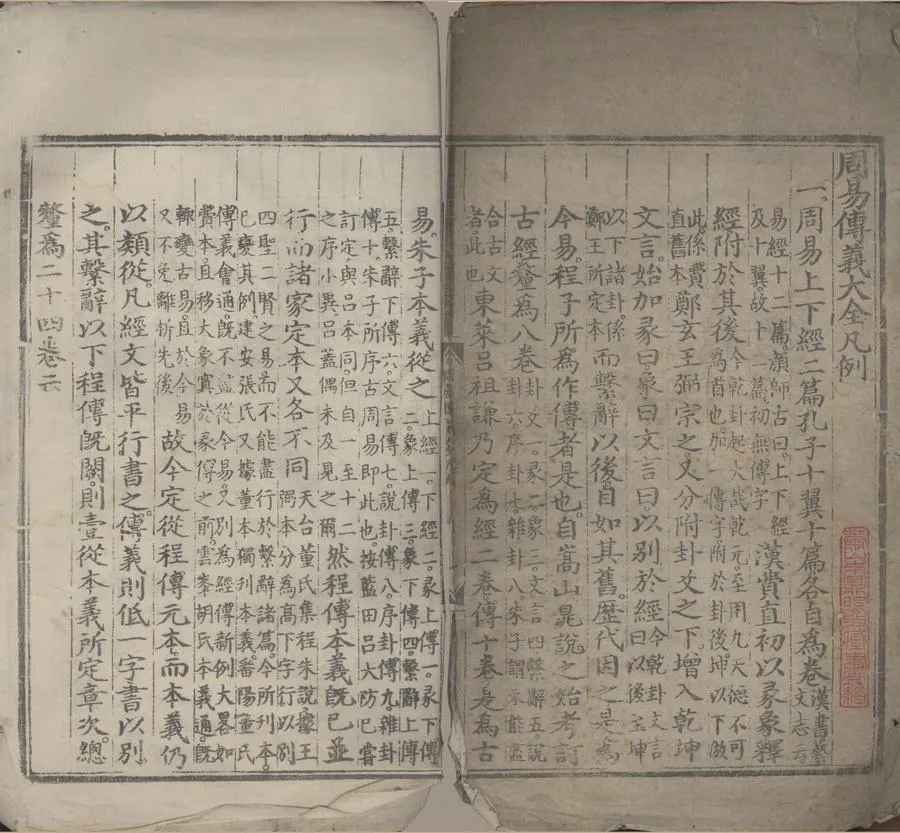 周易傳義大全凡例
一。周易上下經二篇孔子十翼十篇各自爲卷漢書藝文志
易經十二篇顔師古曰。上下經及十翼故十二篇初無傳字漢費直初以彖象釋
經附於其後今乾卦起大哉乾元。至用九天德不可爲首也。加一傳字。附於卦後坤以下倣
此。係費直舊本鄭玄王弼宗之。又分附卦爻之下。增入乾坤
文言。始加彖曰。象曰。文言曰。以別於經今乾卦文言曰以後至坤
以下諸卦。係鄭王所定本而繫辭以後。自如其舊。歷代因之。是爲
今易。程子所爲作傳者是也。自嵩山晁說之始考訂
古經。釐爲八卷卦爻一。彖二。象三。文言四繫辭五說卦六序卦七。雜卦八。朱子謂不能盡
合古文者。此也東萊呂祖謙乃定爲經二卷。傳十卷是爲古
易。朱子本義從之上經一。下經二。彖上傳一。彖下傳二。象上傳三。象下傳四。繫辭上傳
五。繫辭下傳六。文言傳七。說卦傳八。序卦傳九。雜卦傳十。朱子所序古周易即此也。按藍田呂大防已嘗
訂定。與呂本同。但自一至十二之序小異呂蓋偶未及見之爾然程傳本義旣已並
行而諸家定本又各不同天台董氏集程朱說據王弼本分爲高下字行以別
四聖二賢之易而不能盡行於繫辭諸篇。今所刊本。已變其例。建安張氏又據董本獨刊本義鄱陽董氏
傳義會通。旣不盡從今易。又別爲經傳新例大畧如費本。且移大象寘於彖傳之前。雲峯胡氏本義通。旣
輒變古易。且於今易又不免離析先後故今定從程傳元本。而本義仍
以類從。凡經文皆平行書之。傳義則低一字書以別
之。其繫辭以下程傳旣闕。則壹從本義所定章次。總
釐爲二十四卷云